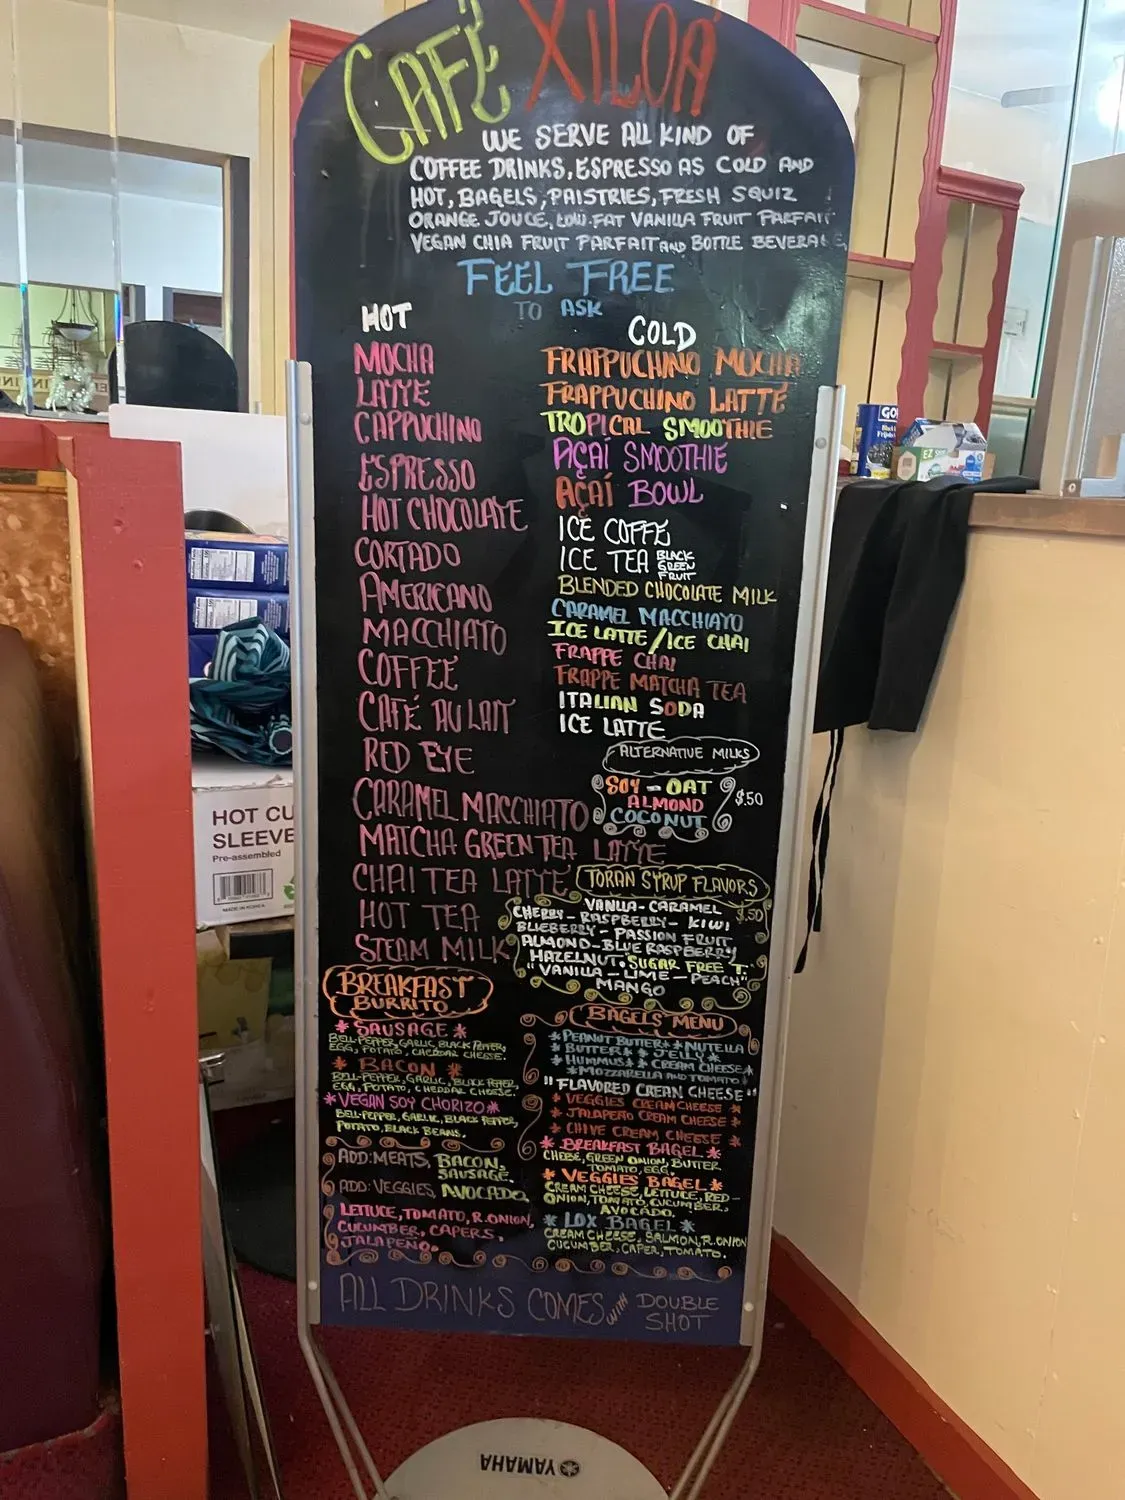 CAFÉ XILOÁ
WE SERVE ALL KIND OF
COFFEE DRINKS, ESPRESSO AS COLD AND
HOT, BAGELS, PAISTRIES, FRESH SQUIZ
ORANGE JOUCE, LOW-FAT VANILLA FRUIT PARFAIT
VEGAN CHIA FRUIT PARFAIT AND BOTTLE BEVERAGE,
FEEL FREE
TO ASK
HOT
MOCHA
LATTE
CAPPUCHINO
ESPRESSO
HOT CHOCOLATE
CORTADO
AMERICANO
MACCHIATO
COFFEE
CAFÉ AU LAIT
RED EYE
CARAMEL MACCHIATO
MATCHA GREEN TEA LATTE
CHAI TEA LATTE
HOT TEA
STEAM MILK
COLD
FRAPPUCHINO MOCHA
FRAPPUCHINO LATTE
TROPICAL SMOOTHIE
AÇAÍ SMOOTHIE
AÇAÍ BOWL
ICE COFFE
ICE TEA BLACK
GREEN
FRUIT
BLENDED CHOCOLATE MILK
CARAMEL MACCHIATO
ICE LATTE/ICE CHAI
FRAPPE CHAI
FRAPPE MATCHA TEA
ITALIAN SODA
ICE LATTE
ALTERNATIVE MILKS
SOY - OAT
ALMOND
COCONUT
$.50
TORAN SYRUP FLAVORS
VANILLA - CARAMEL $.50
CHERRY - RASPBERRY - KIWI
BLUEBERRY - PASSION FRUIT
ALMOND - BLUE RASPBERRY
HAZELNUT. SUGAR FREE T.
"VANILLA - LIME - PEACH"
MANGO
BREAKFAST
BURRITO
* SAUSAGE *
BELL-PEPPER, GARLIC, BLACK PEPPER,
EGG, POTATO, CHEDDAR CHEESE.
* BACON *
BELL-PEPPER, GARLIC, BLACK PEPPER,
EGG, POTATO, CHEDDAR CHEESE.
* VEGAN SOY CHORIZO *
BELL-PEPPER, GARLIC, BLACK PEPPER,
POTATO, BLACK BEANS.
ADD: MEATS, BACON,
SAUSAGE.
ADD: VEGGIES, AVOCADO,
LETTUCE, TOMATO, R.ONION,
CUCUMBER, CAPERS,
JALAPEÑO.
BAGELS MENU
* PEANUT BUTTER * * NUTELLA
* BUTTER * * JELLY *
* HUMMUS * * CREAM CHEESE *
* MOZZARELLA AND TOMATO *
"FLAVORED CREAN CHEESE"
* VEGGIES CREAM CHEESE *
* JALAPEÑO CREAM CHEESE *
* CHIVE CREAM CHEESE *
* BREAKFAST BAGEL *
CHEESE, GREEN ONION, BUTTER
TOMATO, EGG.
* VEGGIES BAGEL *
CREAM CHEESE, LETTUCE, RED-
ONION, TOMATO, CUCUMBER,
AVOCADO.
* LOX BAGEL *
CREAM CHEESE, SALMON, R.ONION
CUCUMBER, CAPER, TOMATO.
ALL DRINKS COMES WITH DOUBLE
SHOT
HOT CU
SLEEVE
Pre-assembled
MADE IN KOREA
GO
EZ
YAMAHA